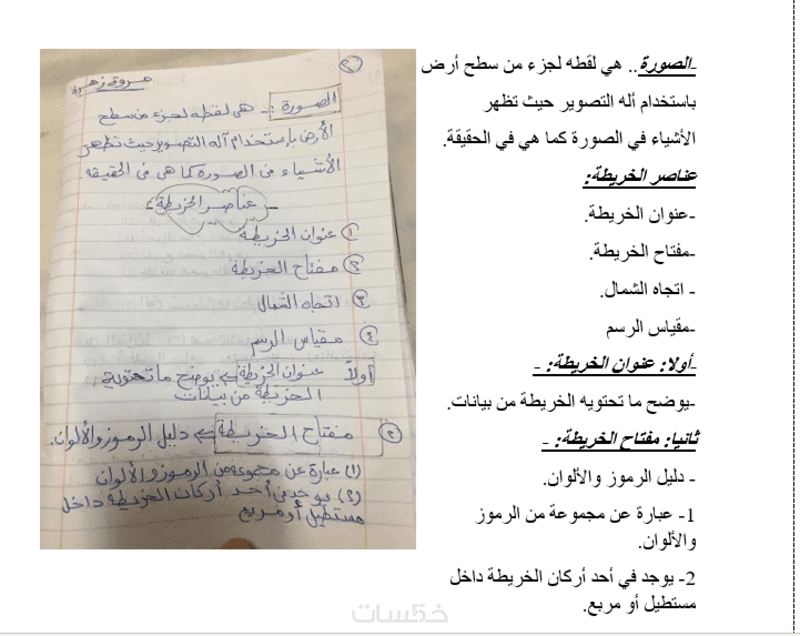 -الصورة.. هي لقطه لجزء من سطح أرض
باستخدام أله التصوير حيث تظهر
الأشياء في الصورة كما هي في الحقيقة.
عناصر الخريطة:
-عنوان الخريطة.
-مفتاح الخريطة.
- اتجاه الشمال.
-مقياس الرسم
-أولا: عنوان الخريطة: -
-يوضح ما تحتويه الخريطة من بيانات.
ثانيا: مفتاح الخريطة: -
- دليل الرموز والألوان.
1- عبارة عن مجموعة من الرموز
والألوان.
2- يوجد في أحد أركان الخريطة داخل
مستطيل أو مربع.
٢
مروة زهرة
الصورة :- هي لقطه لجزء من سطح
الأرض بإستخدام آله التصوير حيث تظهر
الأشياء فى الصوره كما هى فى الحقيقه.
- عناصر الخريطة :-
١ عنوان الخريطة
٢ مفتاح الخريطة
٣ اتجاه الشمال
٤ مقياس الرسم
أولاً عنوان الخريطة ⇐ يوضح ما تحتويه
الخريطة من بيانات
٢ مفتاح الخريطة ⇐ دليل الرموز والألوان.
(١) عبارة عن مجموعه من الرموز والألوان
(٢) يوجد فى أحد أركان الخريطة داخل
مستطيل أو مربع
خمسات